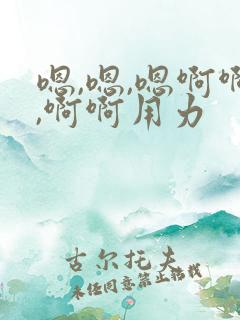 嗯,嗯,嗯啊啊
,啊啊用力
古尔托夫
未经同意禁止转载